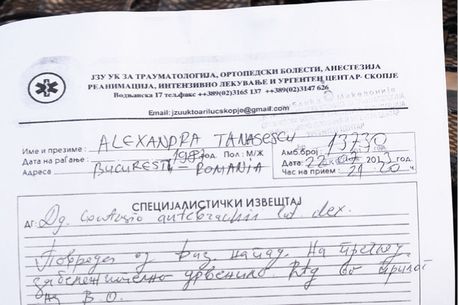 ЈЗУ УК ЗА ТРАУМАТОЛОГИЈА, ОРТОПЕДСКИ БОЛЕСТИ, АНЕСТЕЗИЈА
РЕАНИМАЦИЈА, ИНТЕНЗИВНО ЛЕКУВАЊЕ И УРГЕНТЕН ЦЕНТАР-СКОПЈЕ
Водњанска 17 тел.факс ++389(02)3165 137 ++389(02)3147 626
Email: jzuuktoarilucskopje@gmail.com
Име и презиме : ALEXANDRA TANASESCU Амб.број 13730
Дата на раѓање : 1987 год. Пол : М/Ж Дата: 22 год.
Адреса BUCURESTI - ROMANIA Час на прием 21 00 ч
СПЕЦИЈАЛИСТИЧКИ ИЗВЕШТАЈ
ДГ: Dg. Contusio antebrachii lat dex.
Повреда од физ. напад. На преглед
црвенило. Rtg во прилог
на В.О.